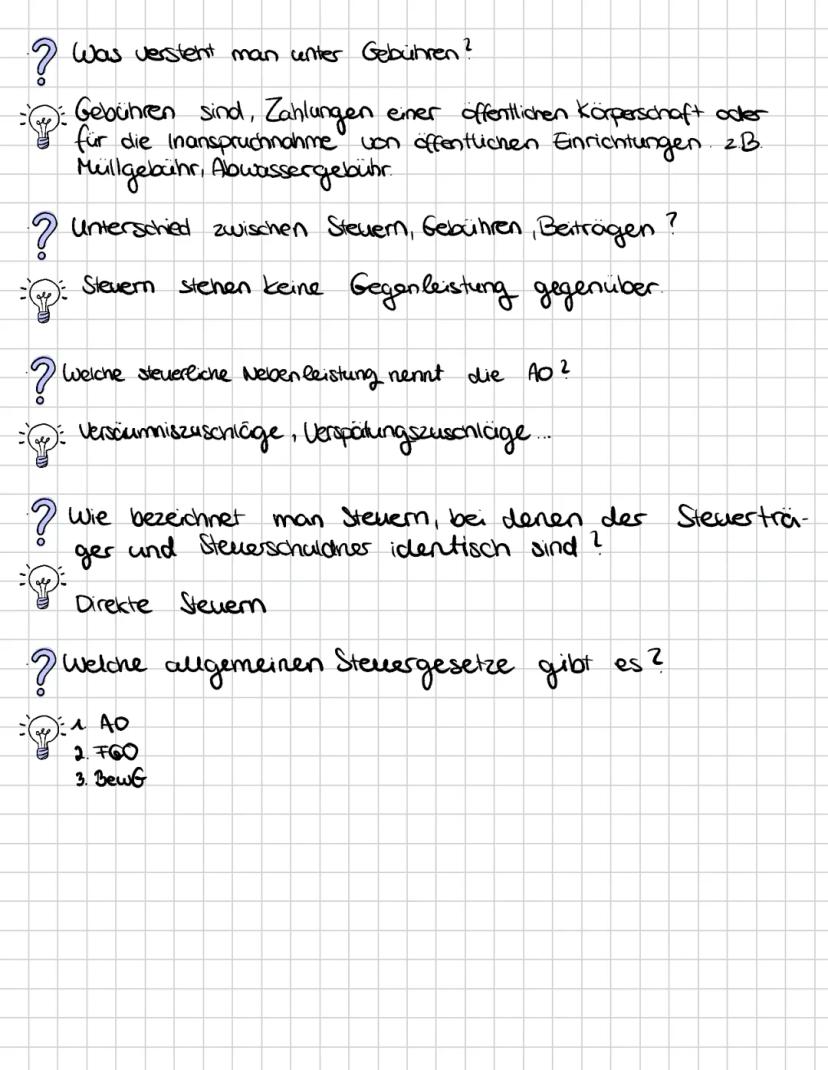 ? Was versteht man unter Gebühren?
Gebühren sind, Zahlungen einer öffentlichen Körperschaft oder
für die Inanspruchnahme von öffentlichen Einrichtungen. z.B.
Müllgebühr, Abwassergebühr.
? Unterschied zwischen Steuern, Gebühren, Beiträgen?
Steuern stehen keine Gegenleistung gegenüber.
? Welche steuerliche Nebenleistung nennt die AO?
Versäumniszuschläge, Verspätungszuschläge...
? Wie bezeichnet man Steuern, bei denen der Steuerträ-
ger und Steuerschuldner identisch sind?
Direkte Steuern
? Welche allgemeinen Steuergesetze gibt es?
1. AO
2. FGO
3. BewG